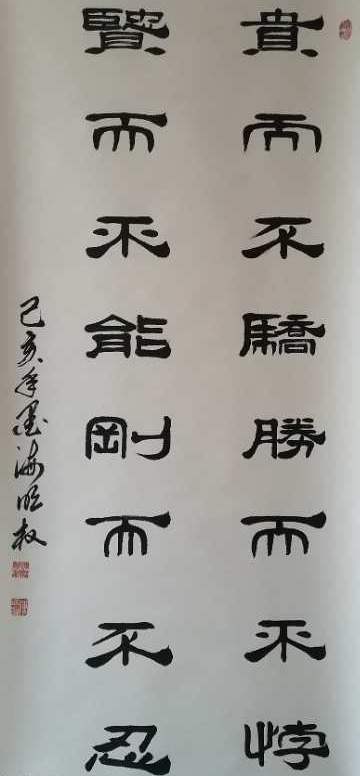 貴而不驕勝而不悖
賢而不能剛而不忍
己亥年墨海